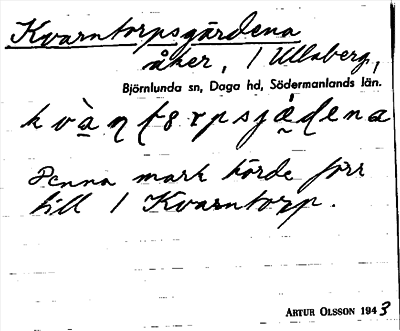 Kvarntorpsgärdena
åker, 1 Ullaberg,
Björnlunda sn, Daga hd, Södermanlands län.
Denna mark hörde förr
till 1 Kvarntorp.
ARTUR OLSSON 1943